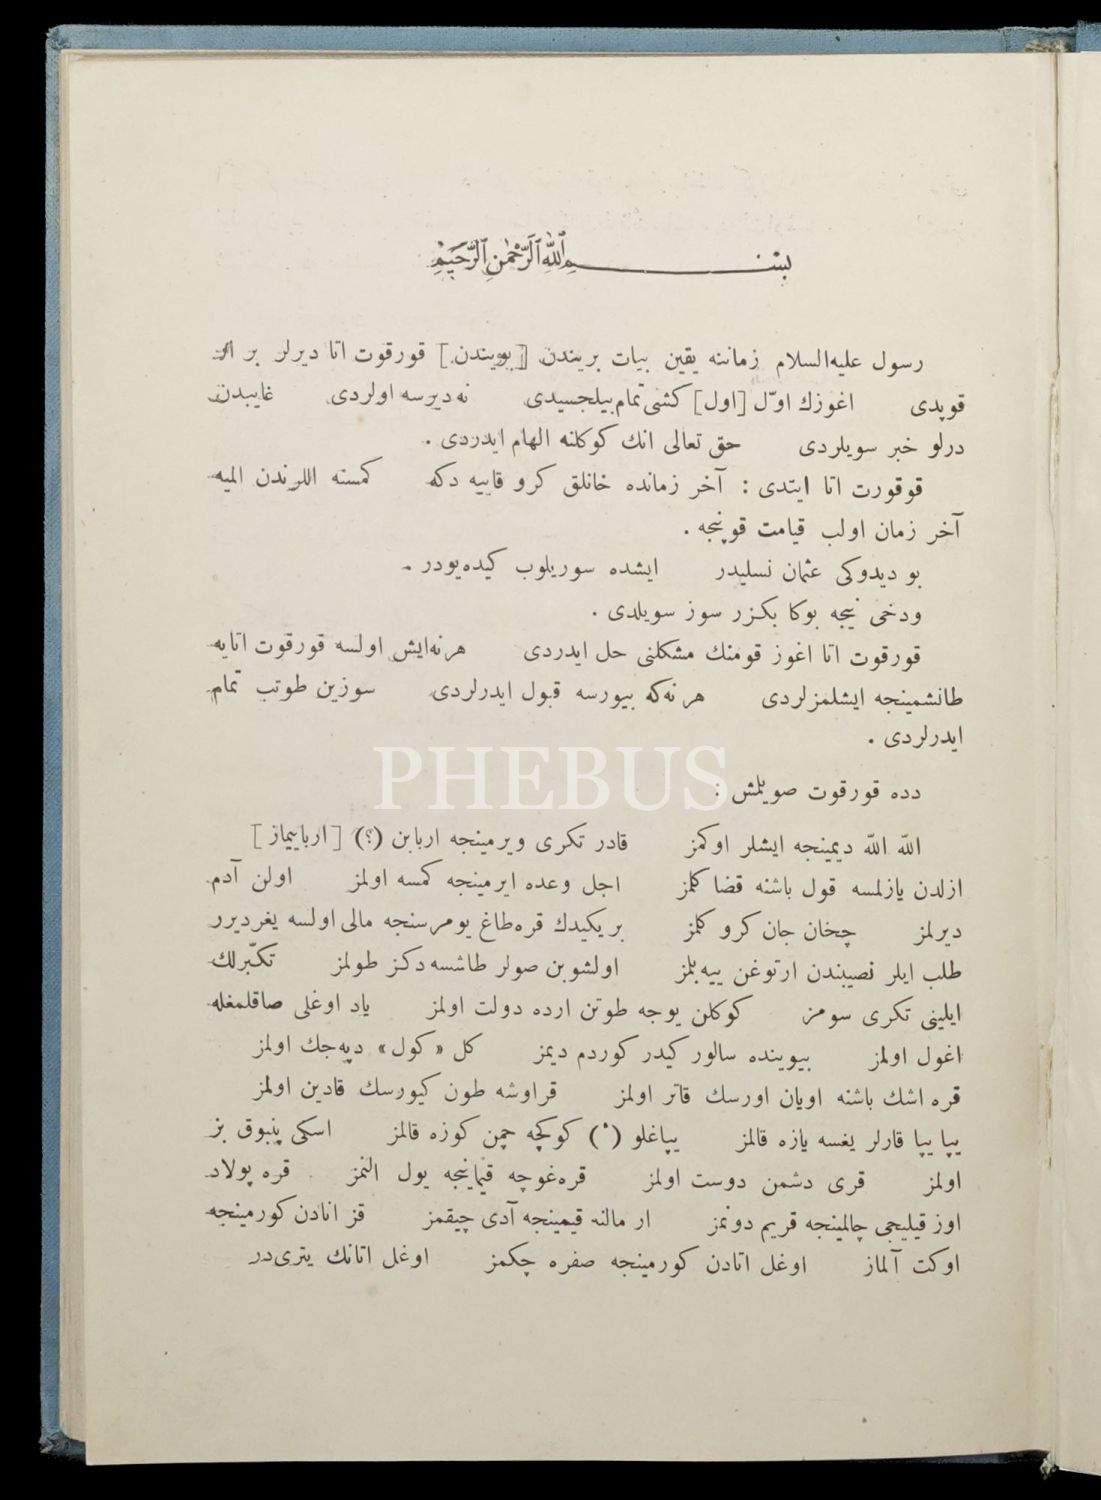 بسم الله الرحمن الرحيم
رسول عليه‌السلام زماننه يقين بيات بريندن [بويندن] قورقوت اتا ديرلر بر ار
قوپدى اغوزك اوّل [اول] كشى تمام بيلجسيدى نه ديرسه اولردى غايبدن
درلو خبر سويلردى حق تعالى انك كوكلنه الهام ايدردى .
قوقورت اتا ايتدى : آخر زمانده خانلق كرو قاييه دكه كمسنه اللرندن الميه
آخر زمان اولب قيامت قوپنجه .
بو ديدوكى عثمان نسليدر ايشده سوريلوب كيده‌يودر .
ودخى نيجه بوكا بكزر سوز سويلدى .
قورقوت اتا اغوز قومنك مشكلنى حل ايدردى هرنه‌ايش اولسه قورقوت اتايه
طانشمينجه ايشلمزلردى هر نه‌كه بيورسه قبول ايدرلردى سوزين طوتب تمام
ايدرلردى .
PHEBUS
دده قورقوت صويلمش :
الله الله ديمينجه ايشلر اوكمز قادر تكرى ويرمينجه اربابن (؟) [اربابيماز]
ازلدن يازلمسه قول باشنه قضا كلمز اجل وعده ايرمينجه كمسه اولمز اولن آدم
ديرلمز چخان جان كرو كلمز بر يكيدك قره‌طاغ يومرسنجه مالى اولسه يغر ديرر
طلب ايلر نصيبندن ارتوغن ييه‌بلمز اولشوبن صولر طاشسه دكز طولمز تكبّرلك
ايلينى تكرى سومز كوكلن يوجه طوتن ارده دولت اولمز ياد اوغلى صاقلمغله
اغول اولمز بيوينده سالور كيدر كوردم ديمز كل «كول» دپه‌جك اولمز
قره اشك باشنه اويان اورسك قاتر اولمز قراوشه طون كيورسك قادين اولمز
يپا يپا قارلر يغسه يازه قالمز يپاغلو (°) كوكچه چمن كوزه قالمز اسكى پنبوق بز
اولمز قرى دشمن دوست اولمز قره‌غوچه قيماينجه يول النمز قره پولاد
اوز قيليجى چالمينجه قريم دونمز ار مالنه قيمينجه آدى چيقمز قز انادن كورمينجه
اوكت آلماز اوغل اتادن كورمينجه صفره چكمز اوغل اتانك يترى‌در